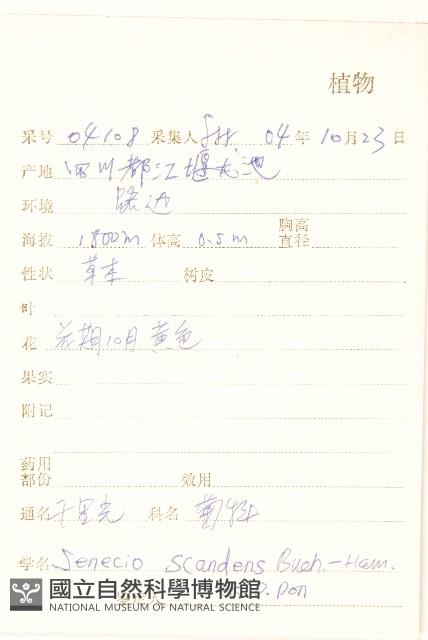 植物
采号 04108 采集人 04年10月23日
产地 四川都江堰龙池
环境 路边
海拔 1800m 体高 0.5m 胸高直径
性状 草本 树皮
叶
花 花期10月 黄色
果实
附记
药用部份 效用
通名 千里光 科名 菊科
学名 Senecio scandens Buch.-Ham.
D. Don
國立自然科學博物館
NATIONAL MUSEUM OF NATURAL SCIENCE